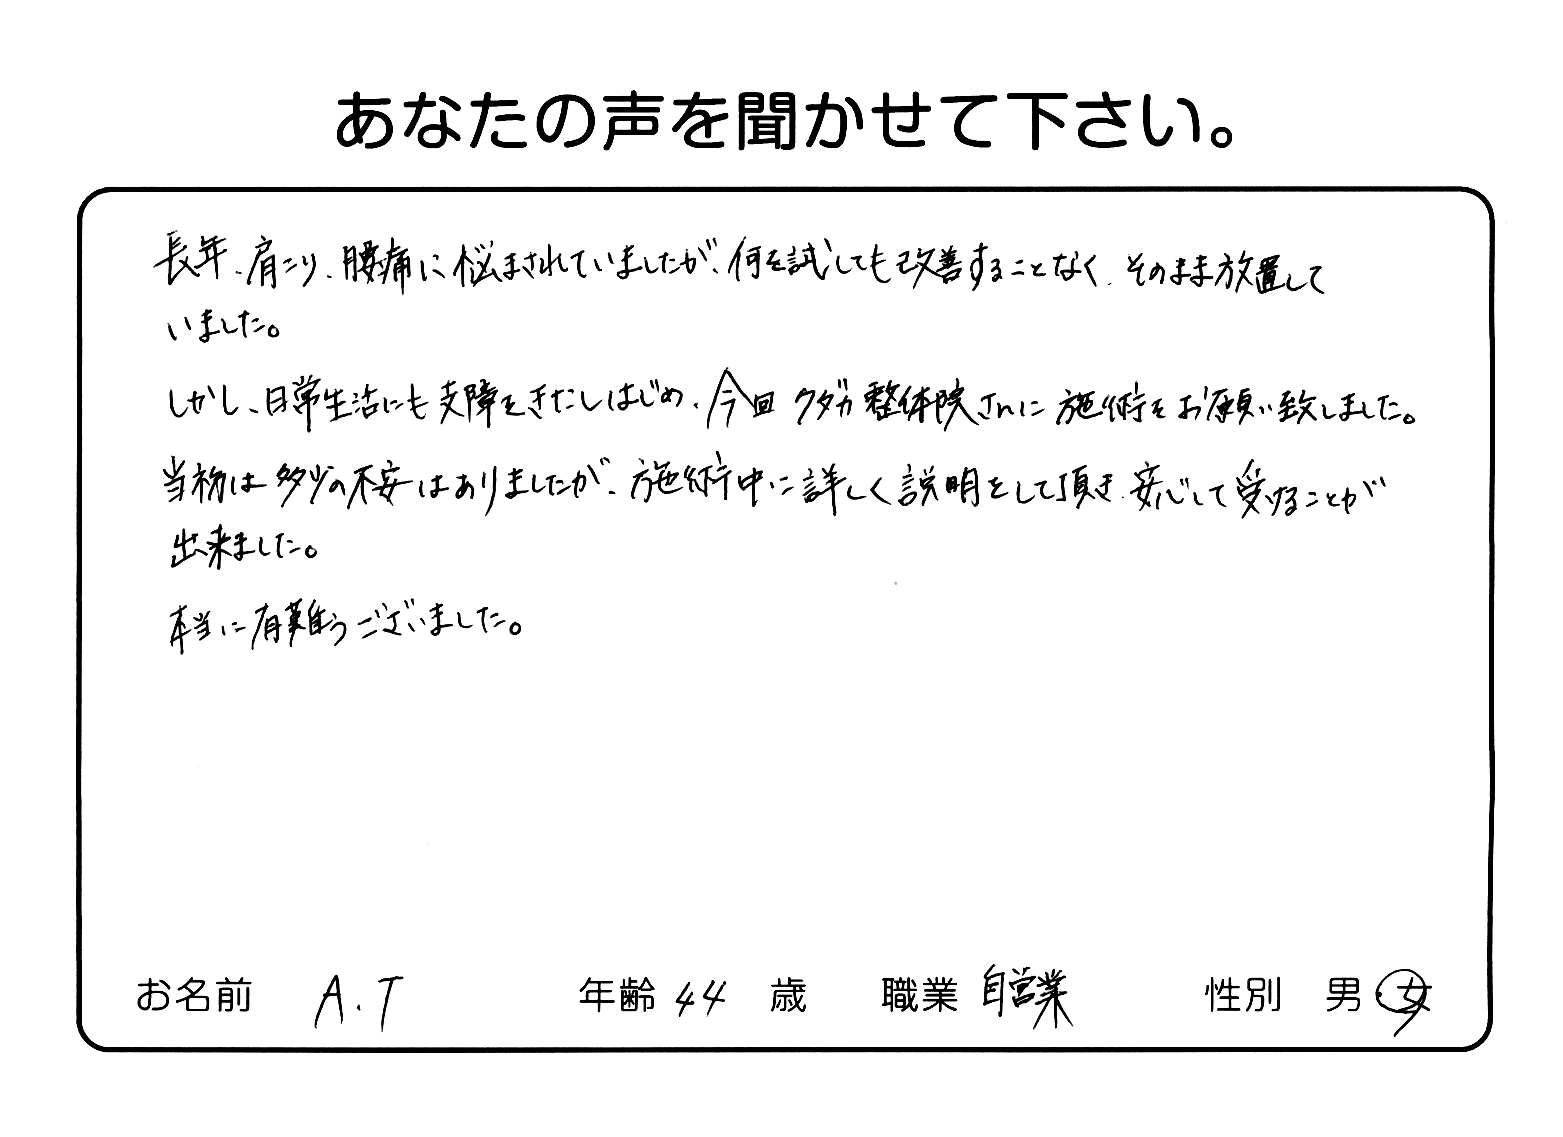 あなたの声を聞かせて下さい。
長年、肩こり、腰痛に悩まされていましたが、何を試しても改善することなく、そのまま放置して
いました。
しかし、日常生活にも支障をきたしはじめ、今回クダカ整体院さんに施術をお願い致しました。
当初は多少の不安はありましたが、施術中に詳しく説明をして頂き、安心して受けることが
出来ました。
本当に有難うございました。
お名前 A.T 年齢 44 歳 職業 自営業 性別 男・女